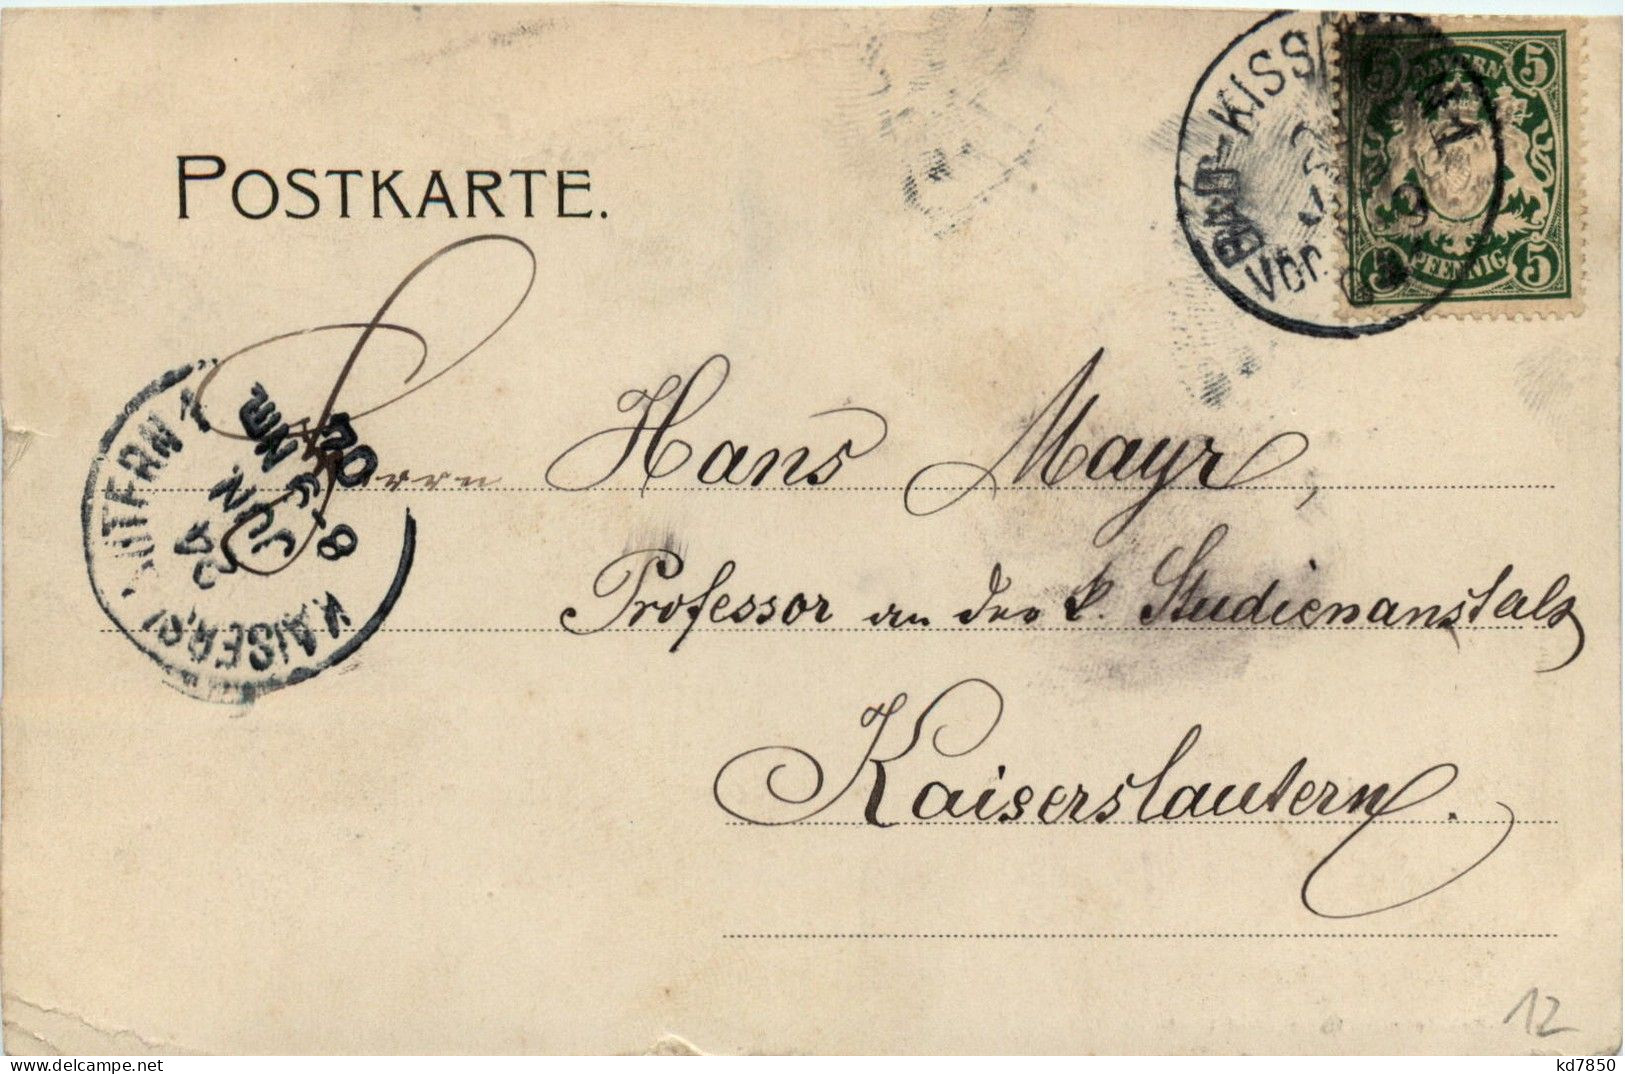 POSTKARTE.
BAD-KISSINGEN 1
Vor.
BAYERN
5 5
5 5
PFENNIG
KAISERSLAUTERN 1
24
JUN.
NM.
8-
02
Herrn Hans Mayr,
Professor an der k. Studienanstalt
Kaiserslautern.
12
kd7850